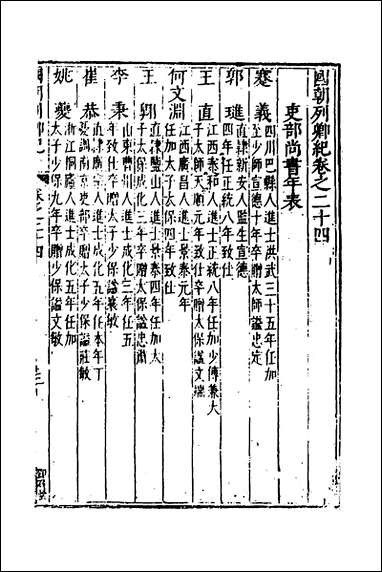 國朝列卿紀卷之二十四
吏部尚書年表
蹇義 四川巴縣人進士洪武三十五年任加
至少師宣德十年卒贈太師謚忠定
郭璡 直隸新安人監生宣德
四年任正統八年致仕
王直 江西泰和人進士正統八年任加少傅兼太
子太師天順元年致仕卒贈太保謚文端
何文淵 江西廣昌人進士景泰元年
任加太子太保四年致仕
王翱 直隸鹽山人進士景泰四年任加太
子太保成化三年卒贈太保謚忠肅
李秉 山東曹州人進士成化三年任五
年致仕卒贈太子少保謚襄敏
崔恭 直隸廣宗人進士成化五年任本年丁
憂調南京吏部卒贈太子少保謚莊敏
姚夔 浙江桐廬人進士成化五年任加
太子少保九年卒贈少保謚文敏